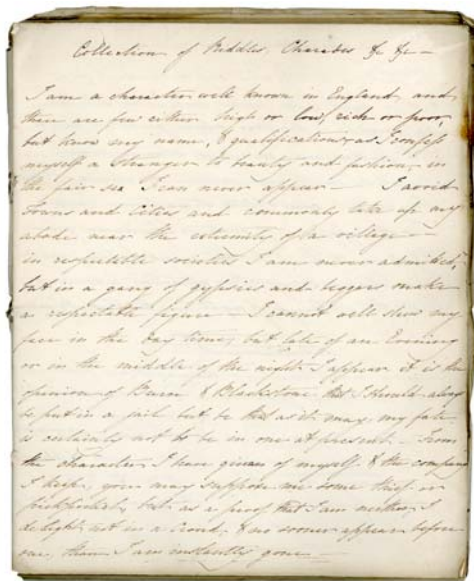 Collection of Riddles Charades &c &c —
I am a character well known in England, and
there are few either high or low, rich or poor
but know my name, & qualifications, as I confess
myself a Stranger to beauty and fashion, in
the fair sex I can never appear — I avoid
Towns and Cities and commonly take up my
abode near the extremity of a village —
in respectible societies I am never admitted,
but in a gang of gypsies and beggers make
a respectable figure I cannot well shew my
face in the Day time, but late of an Evening
or in the middle of the night I appear it is the
opinion of Burn & Blackstone that I should always
be put in a jail but be that as it may, my fate
is certainly not to be in one at present — From
the character I have given of myself & the company
I keep, you may suppose me some thief or
pickpocket, but as a proof that I am neither I
delight not in a Croud, & no sooner appear before
one, than I am instantly gone —